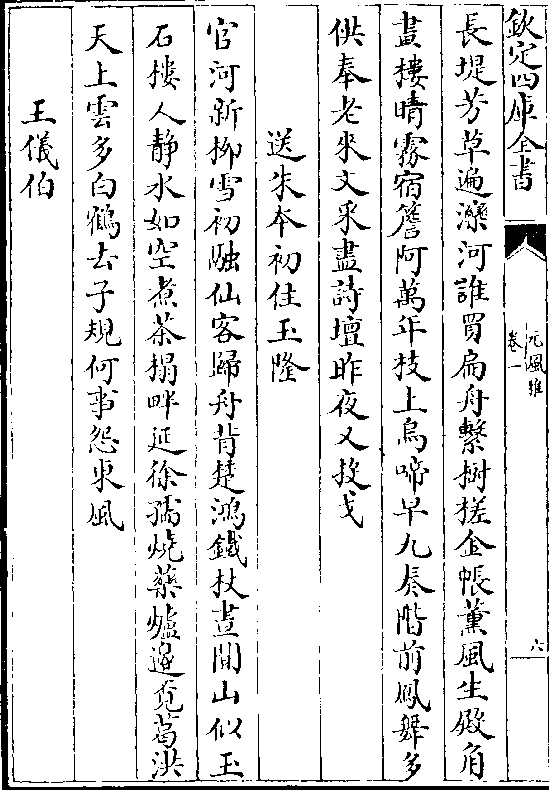 欽定四庫全書
元風雅
卷一
六
長堤芳草遍灤河誰買扁舟繫樹搓金帳薰風生殿角
畫樓晴霧宿簷阿萬年枝上烏啼早九奏階前鳳舞多
供奉老來文采盡詩壇昨夜又投戈
送朱本初住玉隆
官河新柳雪初融仙客歸舟背楚鴻鐵杖晝閒山似玉
石樓人静水如空煮茶榻畔延徐孺燒藥爐邊覓葛洪
天上雲多白鶴去子規何事怨東風
王儀伯